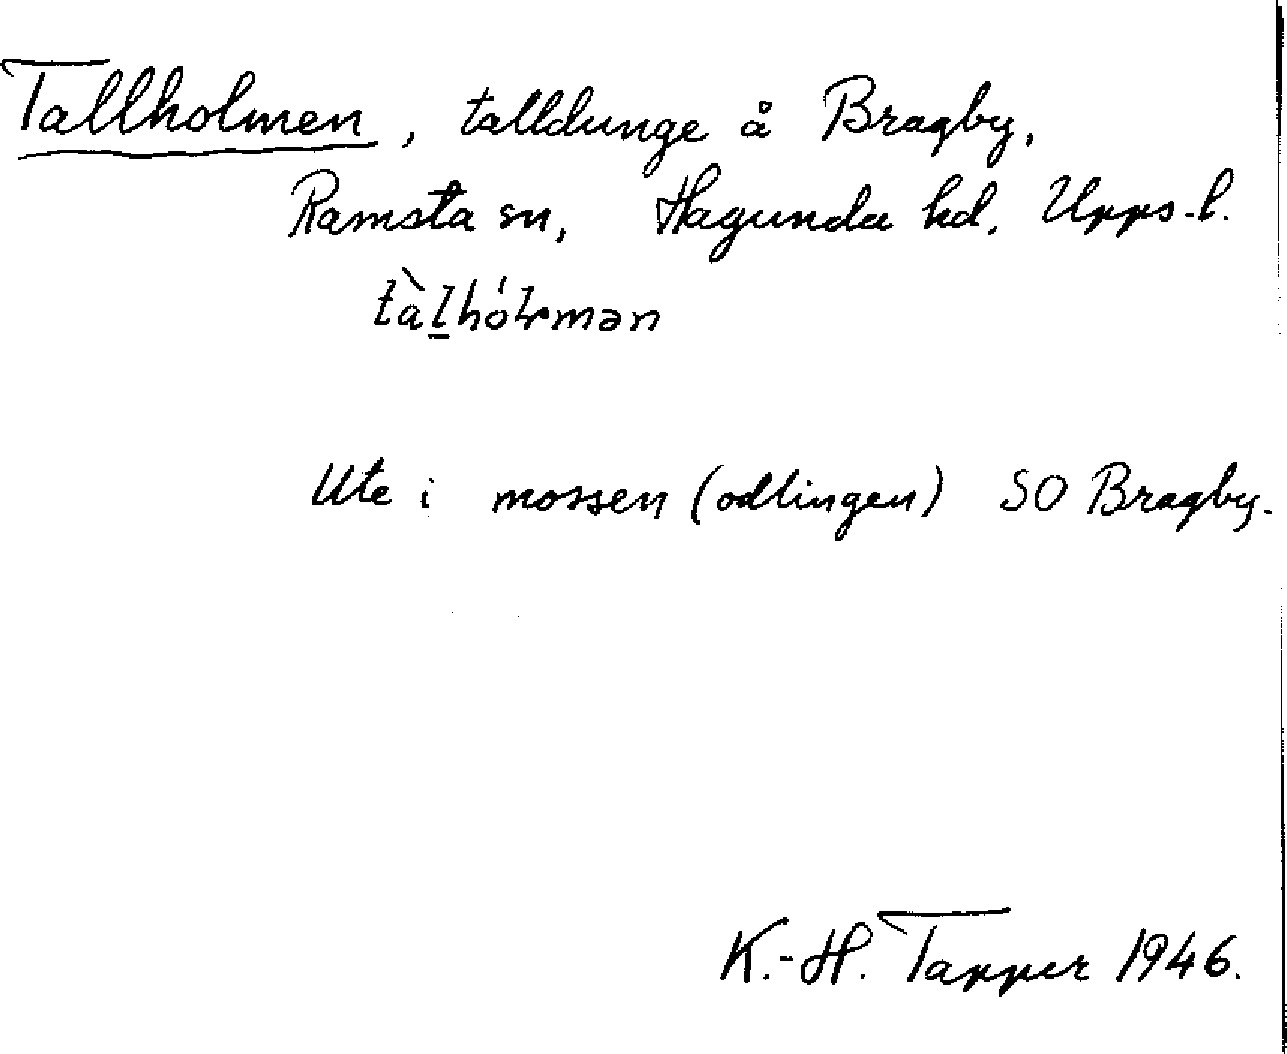 Tallholmen, talldunge å Bragby,
Ramsta sn, Hagunda hd, Upps. l.
tàl̲hóɫmən
Ute i mossen (odlingen) SO Bragby.
K.-H. Tapper 1946.